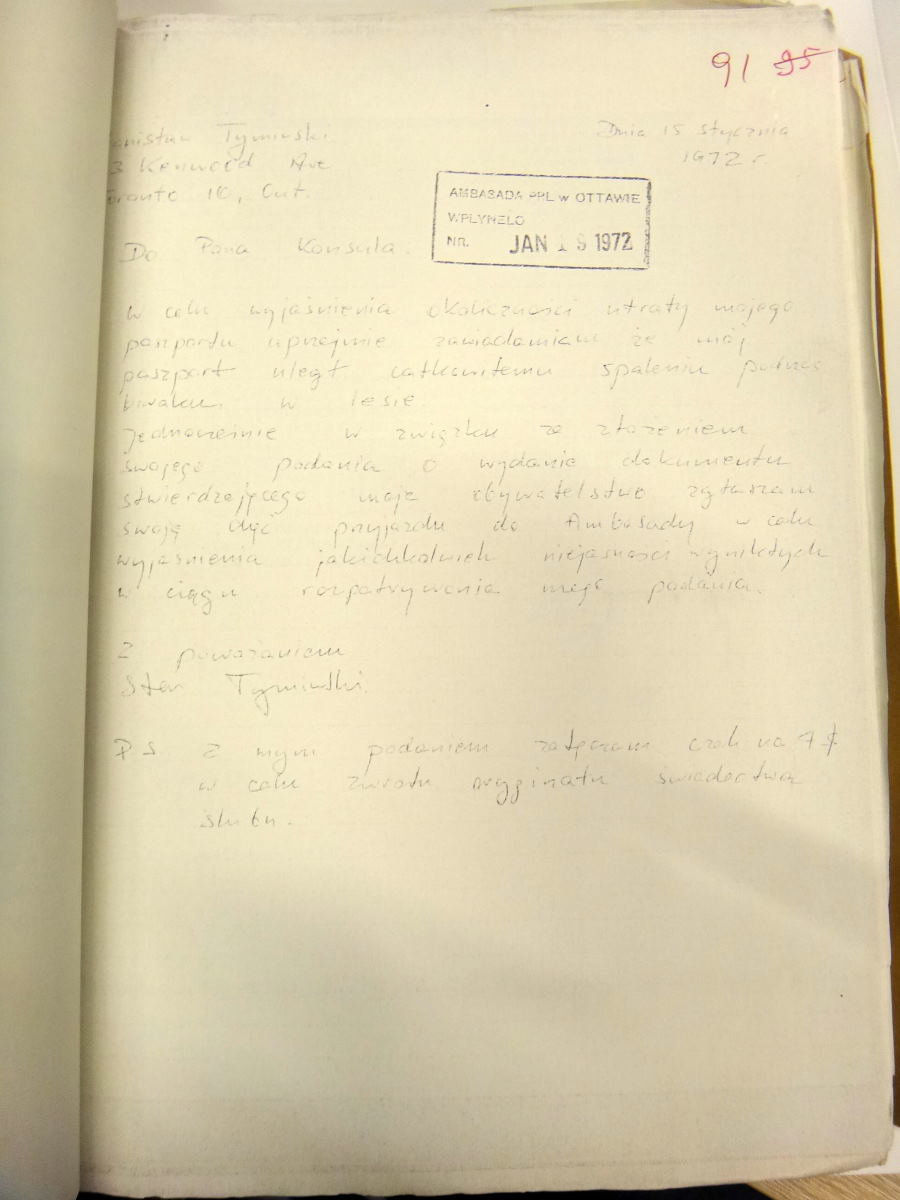 91 95
anisław Tyminski
Dnia 15 stycznia
3 Kenwood Ave
1972 r.
oronto 10, Ont.
AMBASADA PRL w OTTAWIE
WPŁYNĘŁO
NR. JAN 19 1972
Do Pana Konsula.
W celu wyjaśnienia okoliczności utraty mojego
paszportu uprzejmie zawiadamiam że mój
paszport uległ całkowitemu spaleniu podczas
biwaku w lesie.
Jednocześnie w związku ze złożeniem
swojego podania o wydanie dokumentu
stwierdzającego moje obywatelstwo zgłaszam
swoją chęć przyjazdu do Ambasady w celu
wyjaśnienia jakichkolwiek niejasności wynikłych
w ciągu rozpatrywania mego podania.
Z poważaniem
Stan Tyminski.
P.S. Z mym podaniem załączam czek na 7 $
w celu zwrotu oryginału świadectwa
ślubu.